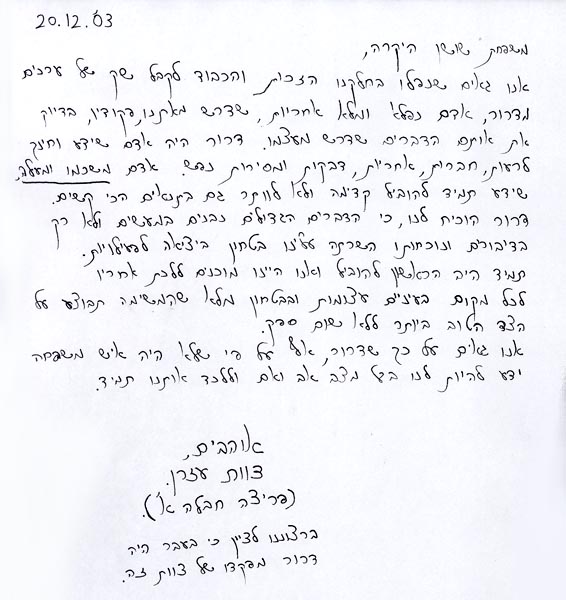 20.12.03
משפחת שושן היקרה,
אנו גאים שנפלו בחלקנו הזכות והכבוד לקבל שק של ערכים
מדרור, אדם נפלא ומלא אחריות, שדרש מאתנו, פקודיו, בדיוק
את אותם הדברים שדרש מעצמו. דרור היה אדם שידע וחינך
לרעות, חברות, אחריות, דבקות ומסירות נפש. אדם משכמו ומעלה,
שידע תמיד להוביל קדימה ולא לוותר גם בתנאים הכי קשים.
דרור הוכיח לנו, כי הדברים הגדולים נבנים במעשים ולא רק
בדיבורים ונוכחותו השרתה עלינו בטחון ביציאה לפעילויות.
תמיד היה הראשון להוביל ואנו היינו מוכנים ללכת אחריו
לכל מקום בעינים עצומות ובבטחון מלא שהמשימה תבוצע על
הצד הטוב ביותר ללא שום ספק.
אנו גאים על כך שדרור, אף על פי שלא היה איש משפחה
ידע להיות לנו בכל מצב אב ואם וללכד אותנו תמיד.
אוהבים,
צוות עזרן.
(פריצה חבלה א').
ברצוננו לציין כי בעבר היה
דרור מפקדו של צוות זה.